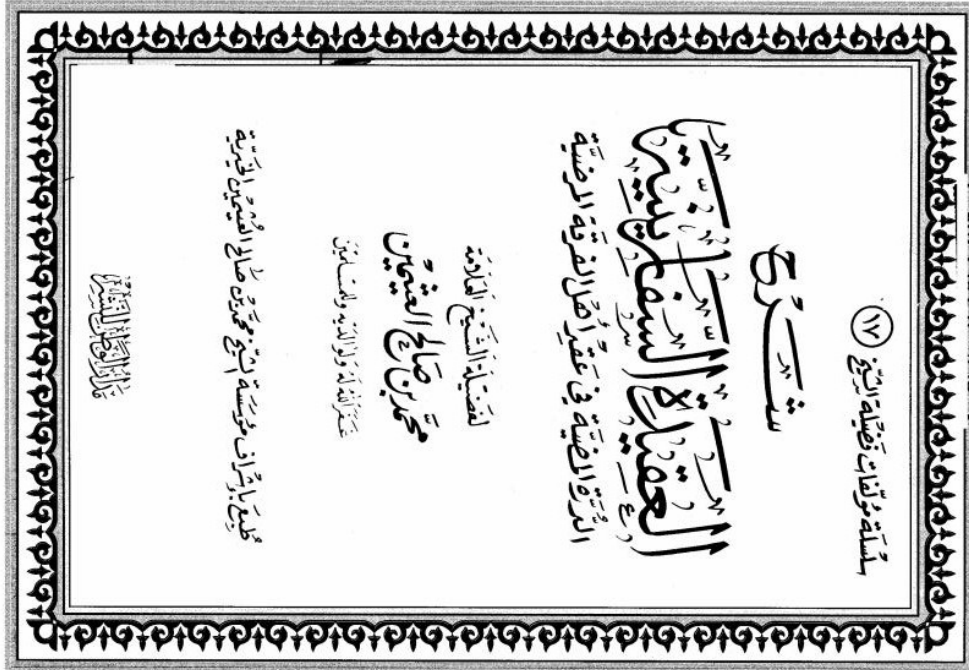 سلسلة مؤلفات فضيلة الشيخ
١٧
شرح
العقيدة السفارينية
الدرة المضية في عقد أهل الفرقة المرضية
لفضيلة الشيخ العلامة
محمد بن صالح العثيمين
غفر الله له ولوالديه وللمسلمين
طبع بإشراف مؤسسة الشيخ محمد بن صالح العثيمين الخيرية